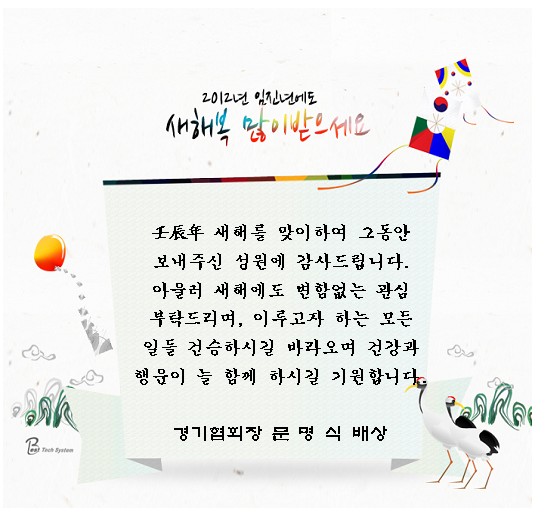 2012년 임진년에도
새해복 많이받으세요
壬辰年 새해를 맞이하여 그동안
보내주신 성원에 감사드립니다.
아울러 새해에도 변함없는 관심
부탁드리며, 이루고자 하는 모든
일들 건승하시길 바라오며 건강과
행운이 늘 함께 하시길 기원합니다
경기협회장 문 명 식 배상
Best Tech System